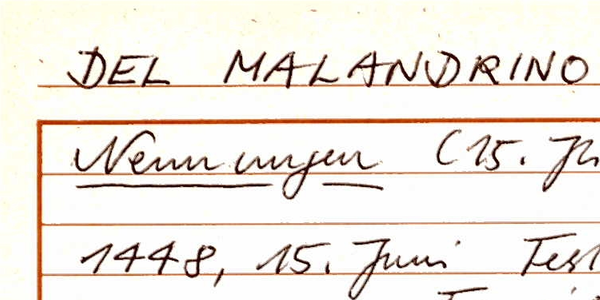 DEL MALANDRINO
Nennungen (15. Jh
1448, 15. Juni Test